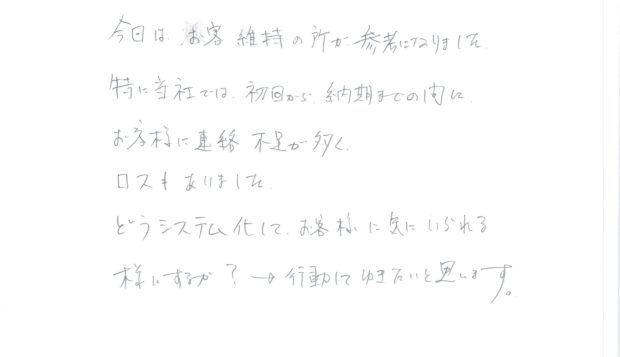 今日は お客維持の所が参考になりました。
特に当社では、初回から、納期までの間に、
お客様に連絡不足が多く、
ロスもありました。
どうシステム化して、お客様に気にいられる
様にするか？→行動してゆきたいと思います。